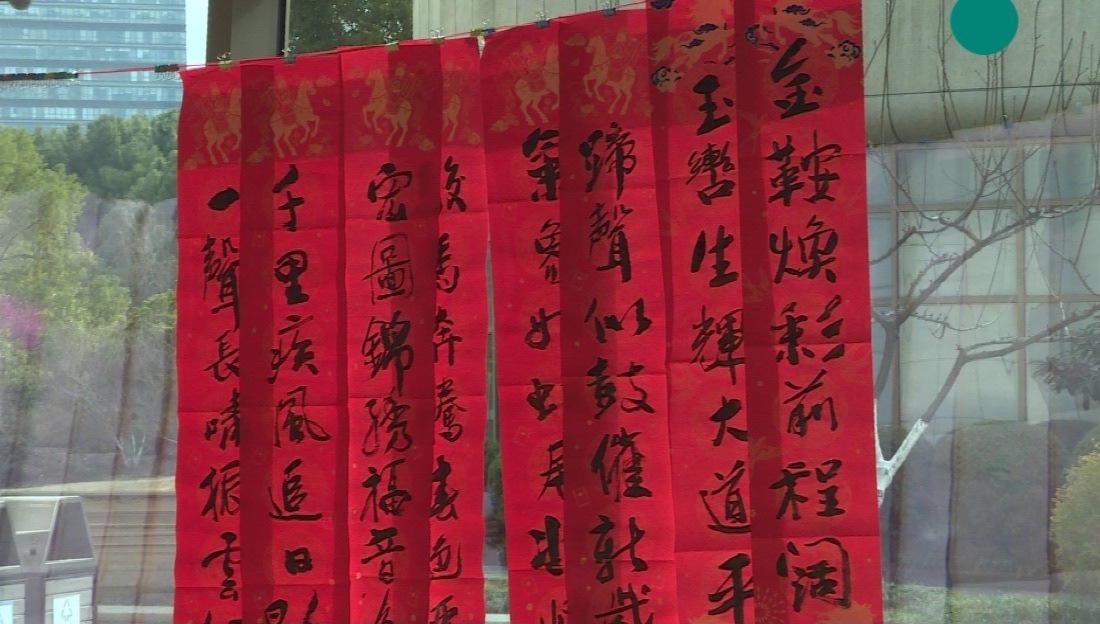 金鞍煥彩前程闊
玉轡生輝大道平
蹄聲似鼓催新歲
氣
馬奔騰春色
宏圖錦綉福音
千里疾風追日影
一聲長嘯振雲